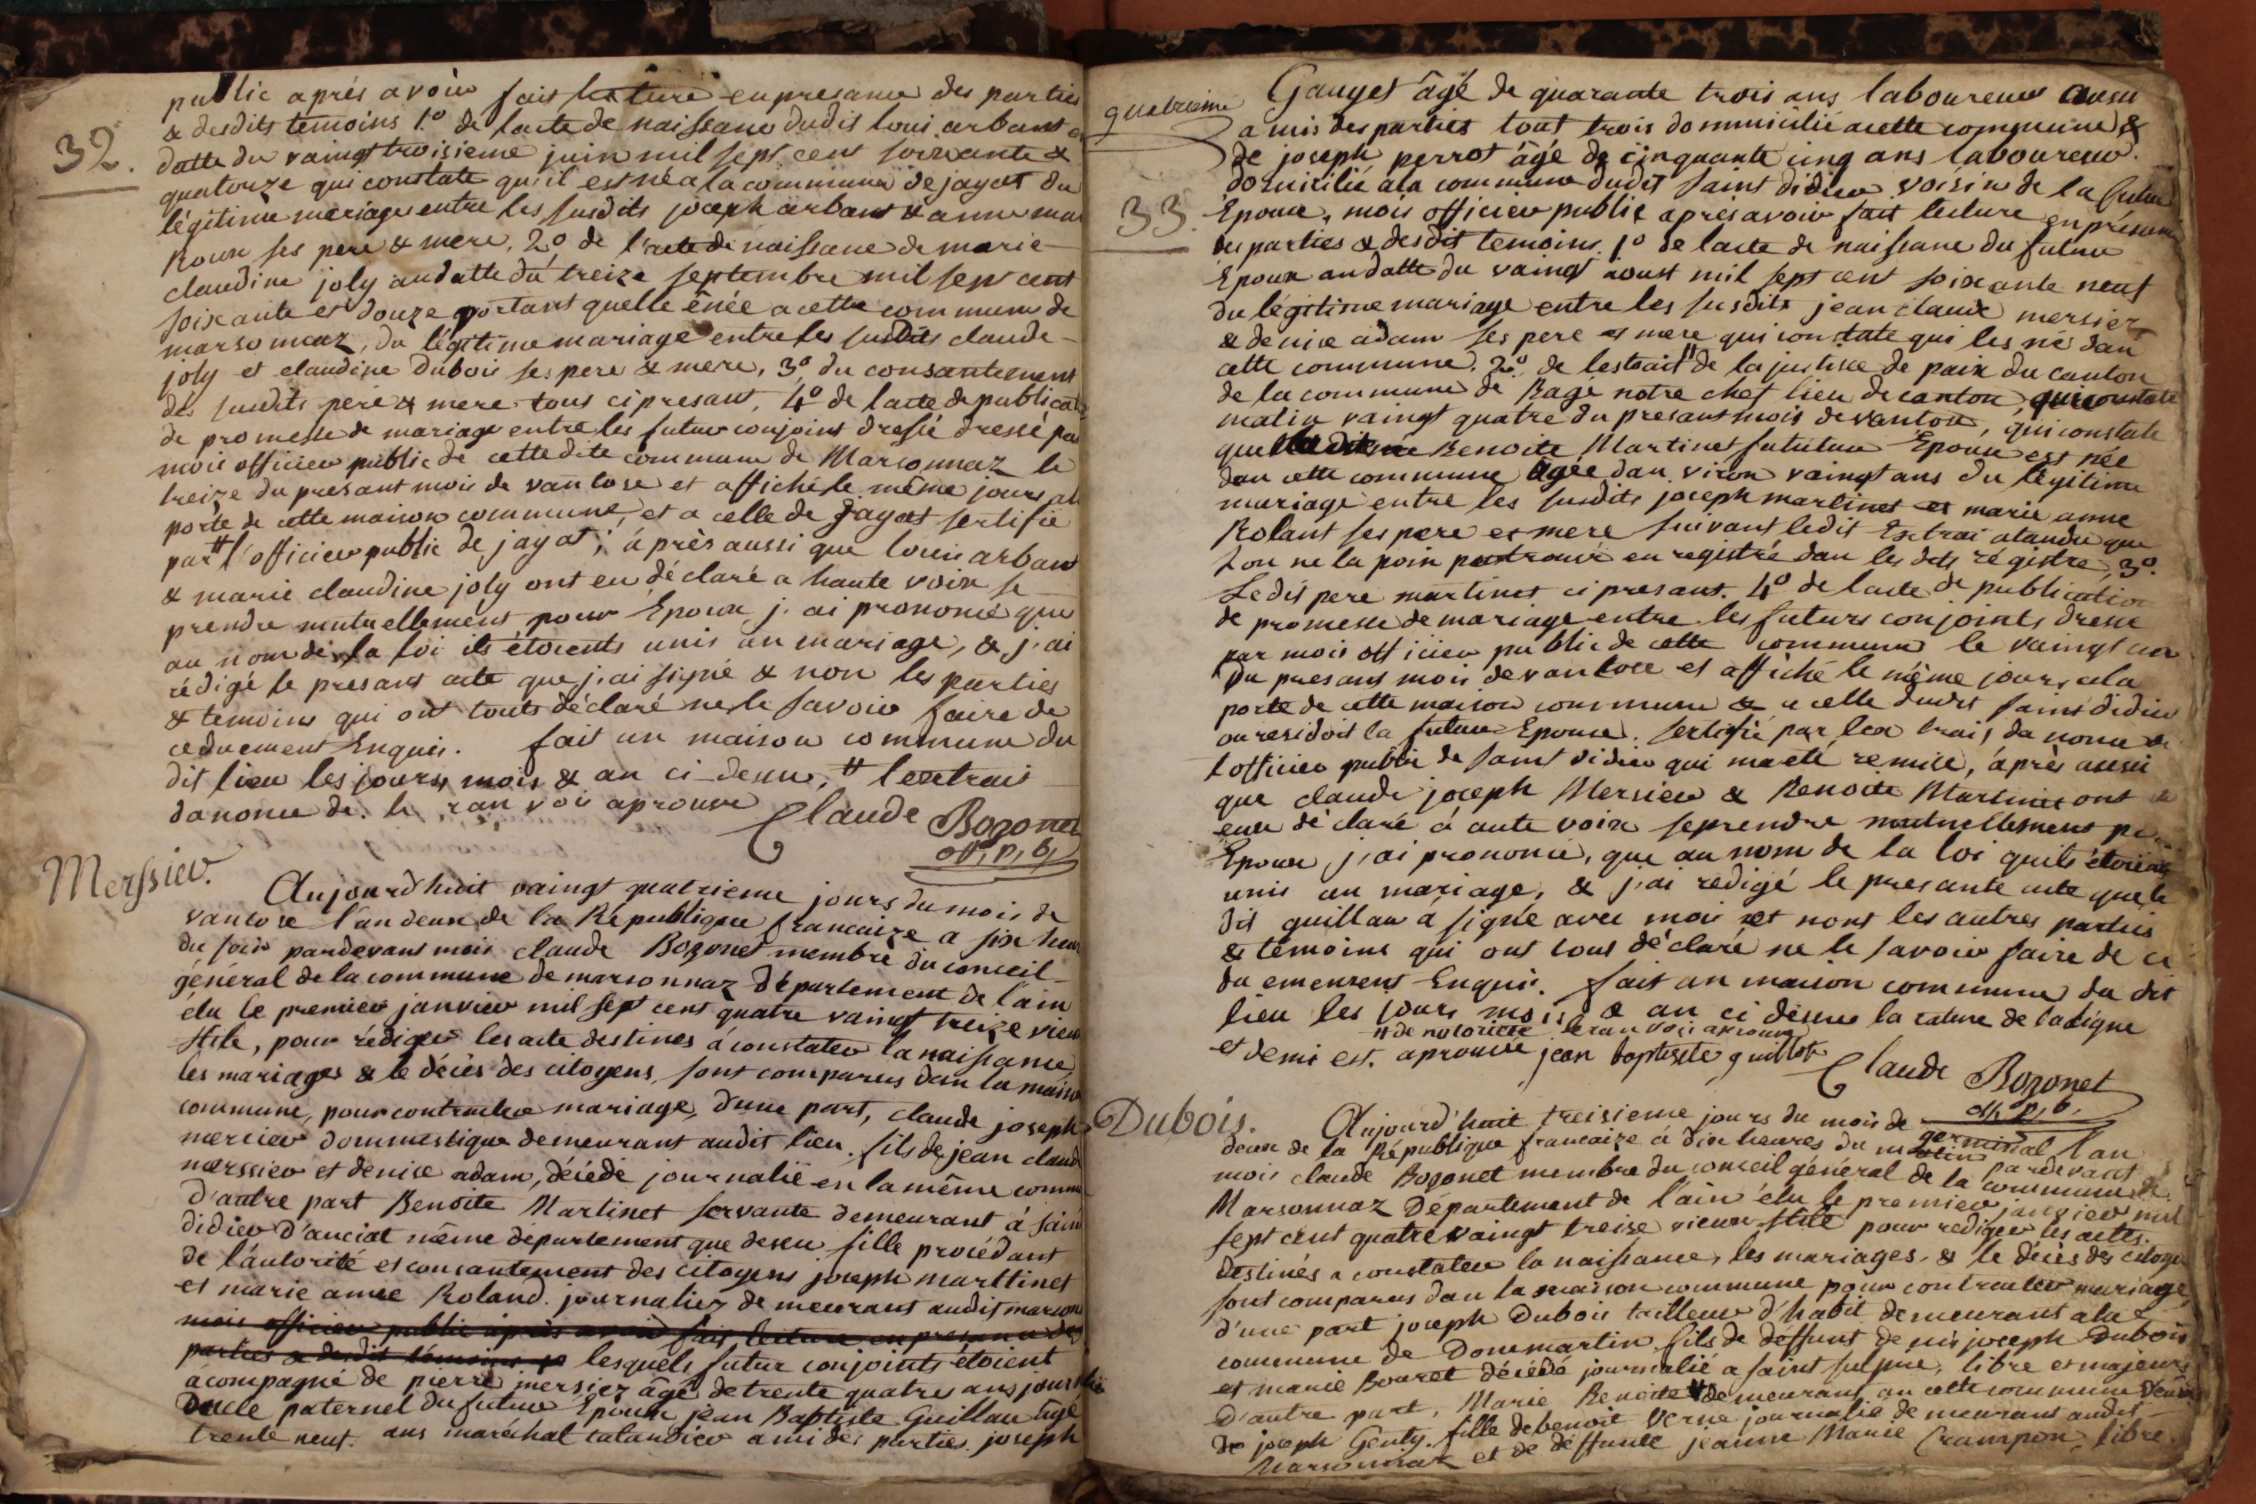 32.
public après avoir fait lecture en presance des parties
& desdits temoins 1.o de lacte de naissance dudit loui arbant
datte du vaingt troisieme juin mil sept cent soixante &
quatorze qui constate qu'il est né a la commune de jayat du
légitime mariage entre les susdits joseph arbant & anne mar
Roux ses pere & mere, 2.o de l'acte de naissance de marie
claudine joly an datte du treize septembre mil sept cent
soixante et douze portant quelle énée a cette commune de
marsonnaz, du légitime mariage entre les susdits claude
joly et claudine Dubois ses pere & mere, 3.o du consantement
des susdits pere & mere tous ci presant, 4.o de lacte de publication
de promesse de mariage entre les futur conjoins dressé dressé par
mois officier public de cette dite commune de Marsonnaz le
treize du presant mois de vantose et affiché le même jours
porte de cette maison commune, et a celle de Jayat sertifié
par # l'officier public de jayat; après aussi que louis arbant
& marie claudine joly ont eu déclaré a haute voix se
prendre mutuellement pour Epoux j'ai prononcé que
au nom de la loi ils étoients unis an mariage, & j'ai
rédigé le presant acte que j'ai signé & non les parties
& temoins qui ont touts déclaré ne le savoir faire de
ce duement Enquis. fait an maison commune du
dit lieu les jours, mois & an ci desu, # lextrait
danonce de. le ranvoi aprouvé Claude Bozonet
off, p, b,
Merssier.
Aujourd'huit vaingt quatrieme jours du mois de
vantose l'an deux de la République francaize a six heur
du soir pardevant mois claude Bozonet membre du conseil
général de la commune de marsonnaz Département de l'ain
élu le premier janvier mil sept cent quatre vaingt treize vieu
stile, pour rédiger les acte destines á constater la naissance
les mariages & le décès des citoyens, sont comparus dan la maison
commune, pour contracter mariage, d'une part, claude joseph
mercier dommestique demeurant audit lieu. fils de jean claude
merssier et denise adam, décédé journalié en la même commune
d'autre part Benoite Martinet servante demeurant á saint
didier d'auciat même département que desu fille procédant
de l'autorité et consantement des citoyens joseph marttinet
et marie anne Roland. journalier demeurant audit marsonnaz
mois officier public après avoir fait lecture en presance des
parties & desdit témoins lesquels futur conjoints étoient
acompagné de pierre mersier âgé de trente quatre ans journalié
Oncle paternel du futur Epoux jean Baptiste Guillau âgé
trente neuf. ans maréchal tatandier ami des parties. joseph
quatrieme
33.
Gauyet âgé de quarante trois ans laboureur aussi
amis des parties tout trois dommicilié a cette commune &
de joseph perrot âgé de cinquante cinq ans laboureur.
domicilié a la commune dudit saint didier voisin de la future
Epouse, mois officier public après avoir fait lecture en présance
des parties & desdit temoins. 1.o de lacte de naissance du futur
Epoux an datte du vaingt aoust mil sept cent soixante neuf
du légitime mariage entre les susdits jean claude mersier
& denise adam ses pere et mere qui constate qui les né dan
cette commune. 2.o de lextrait # de la justice de paix du canton
de la commune de Bagé notre chef lieu de canton, qui constate
matin vaingt quatre du presant mois de vantose, qui constate
que Benoite Martinet fututure Epouse est née
dan cette commune âgée dan viron vaingt ans du légitime
mariage entre les susdits joseph martinet et marie anne
Rolant ses pere et mere suivant ledit Extrai atandu que
lon ne la poin trouvé en registré dan les dits régistre, 3.o
Ledit pere martinet ci presant. 4.o de lacte de publication
de promesse de mariage entre les futurs conjoints dressé
par mois officier public de cette commune le vaingt un
du presant mois de vantose et affiché le même jours, a la
porte de cette maison commune & a celle dudit saint didier
ou residoit la future Epouse. sertifié par lextrais danonce de
l'officier public de saint didier qui ma eté remise, après aussi
que claude joseph Mersier & Benoite Martinet ont
eux déclaré á aute voix se prendre mutuellement pour
Epoux j'ai prononcé, que au nom de la loi quils étoient
unis an mariage, & j'ai redigé le presante acte que le
dit guillau á signé avec mois et nont les autres parties
& témoins qui ont tous déclaré ne le savoir faire de ce
du ement Enquis. fait an maison commune du dit
lieu les jours mois & an ci desu la rature de la ligne
# de notoriété le ranvois aprouvé
et demi est. aprouvée jean baptiste guillot
Claude Bozonet
off, p, b,
Dubois.
Aujourd'huit treisieme jours du mois de germinal l'an
deux de la République francaize á dix heures du matin pardevant
mois claude Bozonet membre du conseil général de la commune de
Marsonnaz Département de l'ain élu le premier janvier mil
sept cent quatre vaingt treize vieux stile pour rediger les actes
destinés a constater la naissance, les mariages. & le décès des citoyen
sont comparus dan la maison commune pour contracter mariage,
d'une part joseph Dubois tailleur d'habit demeurant a la
commune de Donmartin fils de déffunt denis joseph Dubois
et marie Bouret décédé journalié a saint sulpice, libre et majeurs
D'autre part, Marie Benoite demeurant an cette commune veuve
de joseph Genty. fille de benoit Verne journalié demeurant audit
Marsonnaz et de déffunte jeanne Marie Crampon, libre